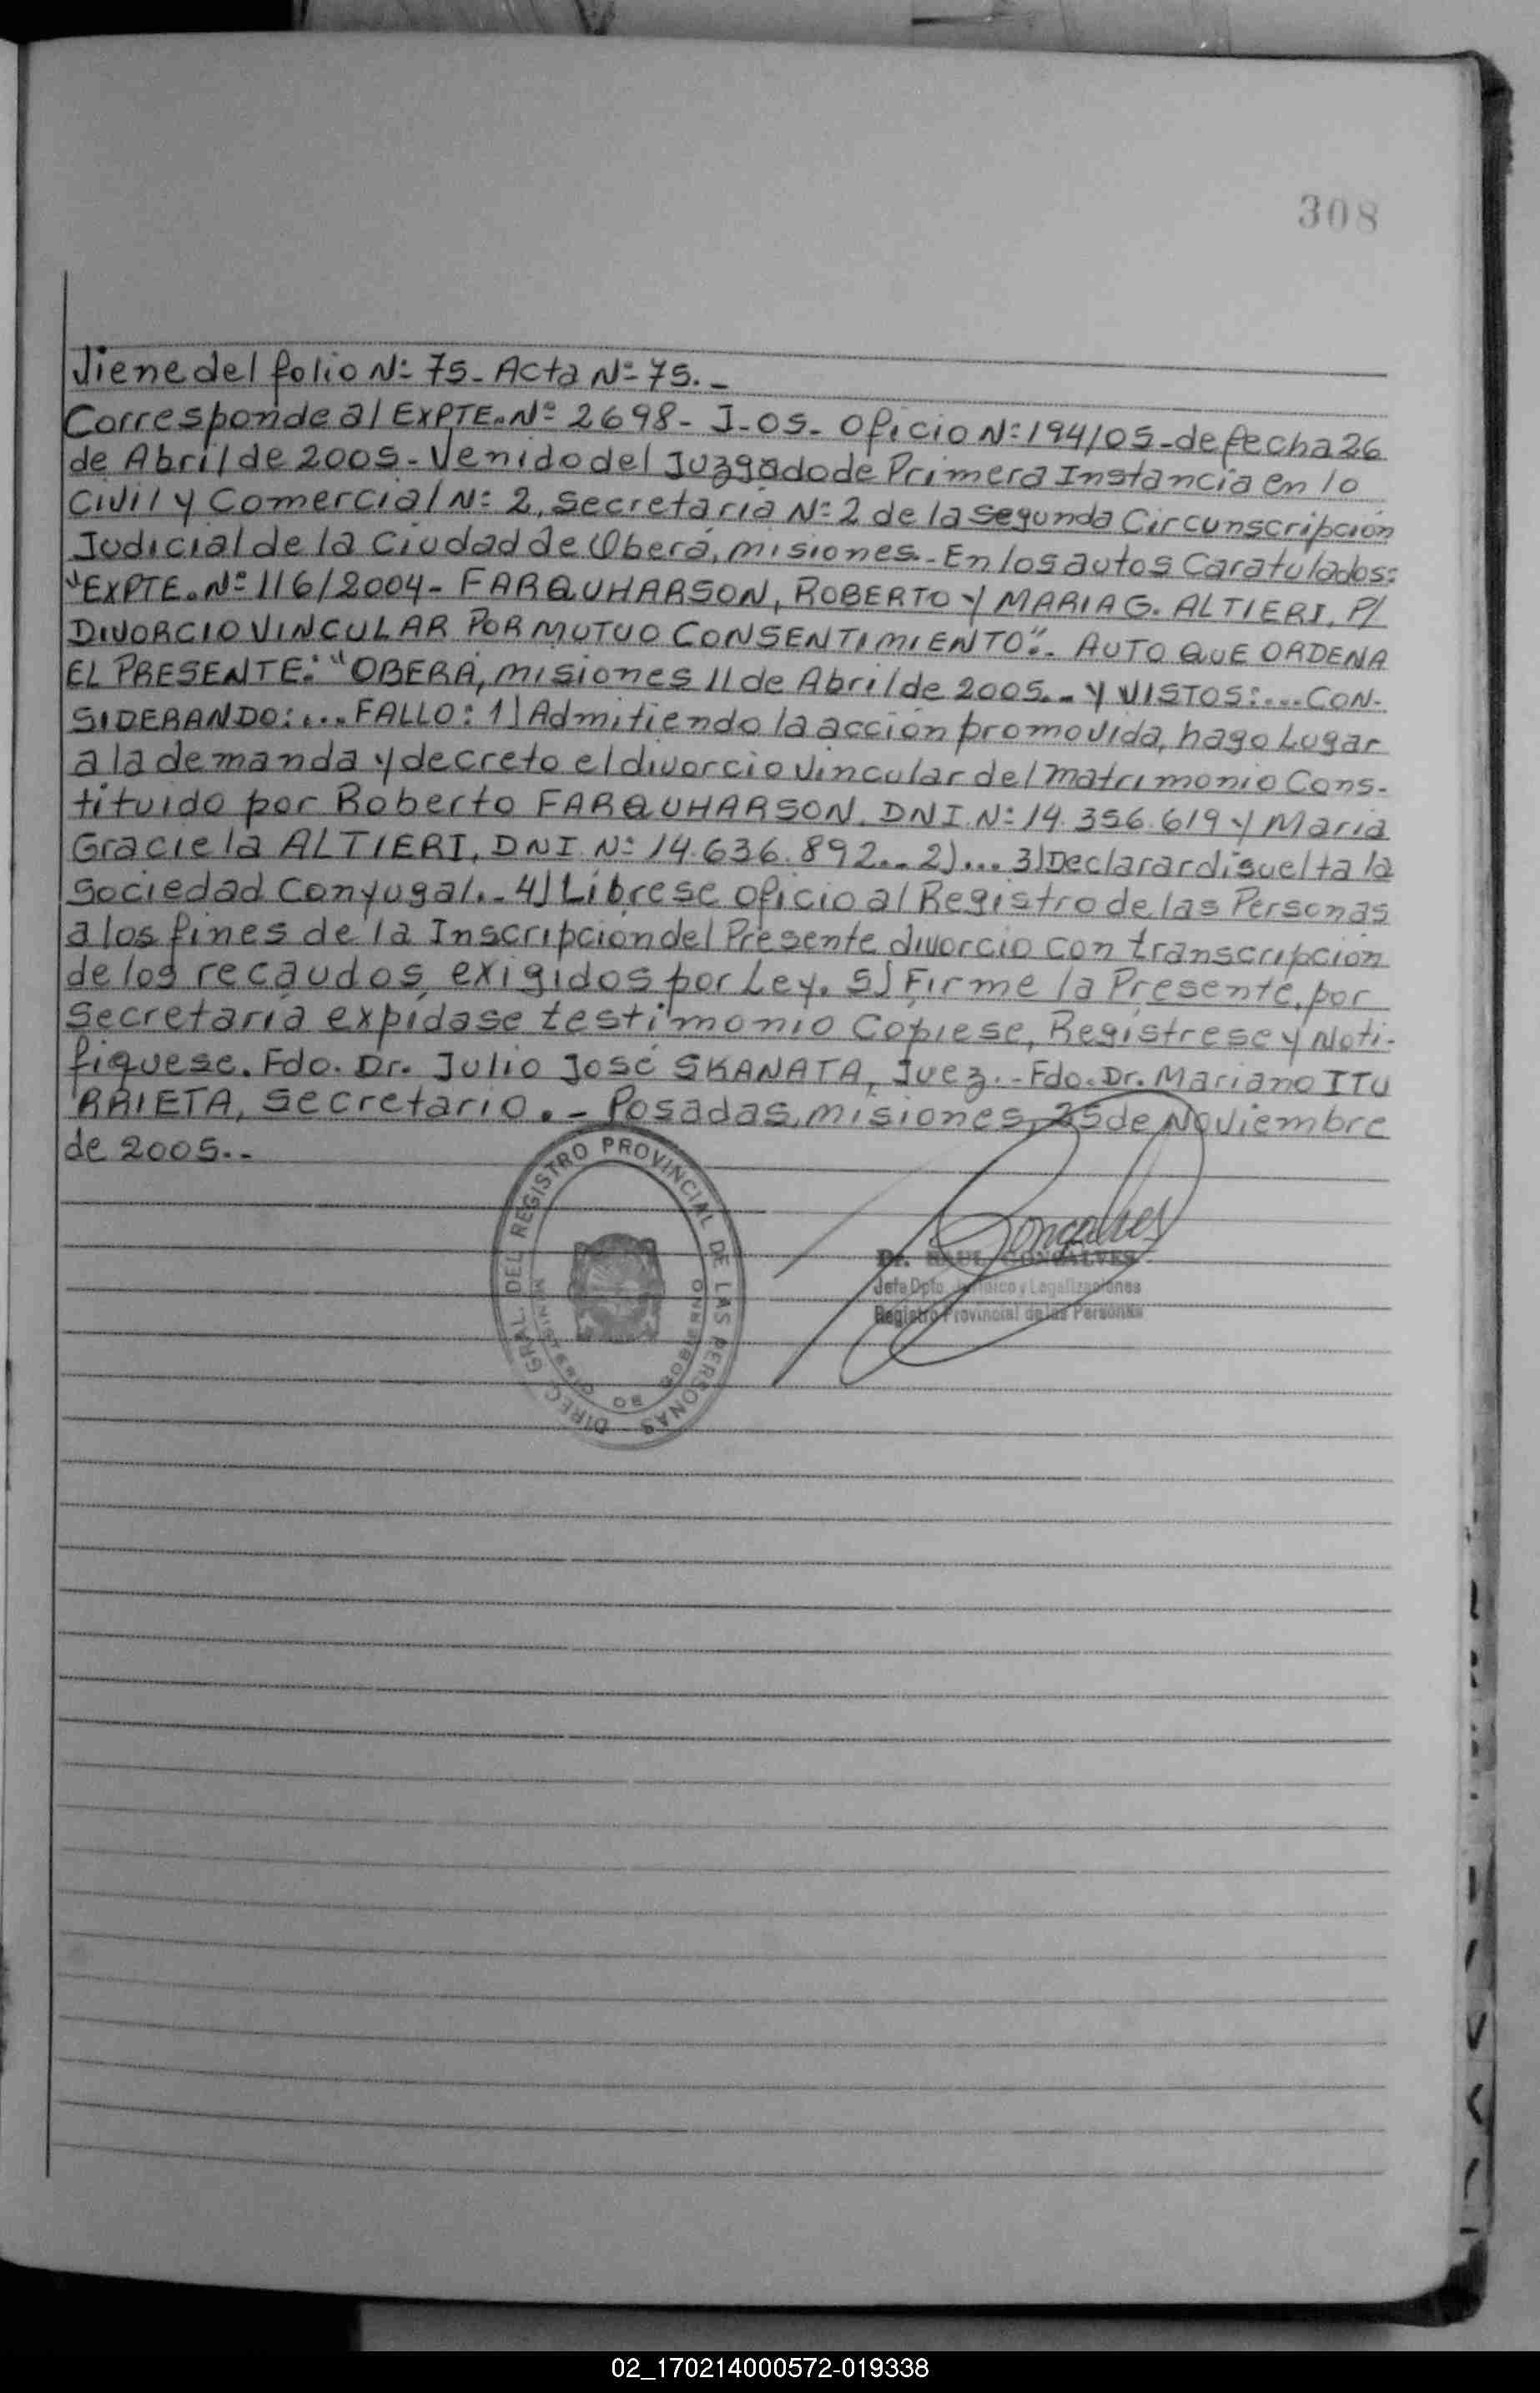 308
Viene del folio Nº 75- Acta Nº 75.-
Corresponde al EXPTE. Nº 2698- J-05- Oficio Nº 194/05- de fecha 26
de Abril de 2005- Venido del Juzgado de Primera Instancia en lo
Civil y Comercial Nº 2, Secretaría Nº 2 de la segunda Circunscripción
Judicial de la Ciudad de Oberá, misiones.- En los autos Caratulados:
"EXPTE. Nº 116/2004- FARQUHARSON, ROBERTO Y MARIA G. ALTIERI, P/
DIVORCIO VINCULAR POR MUTUO CONSENTIMIENTO".- AUTO QUE ORDENA
EL PRESENTE: "OBERÁ, misiones 11 de Abril de 2005.- Y VISTOS:... CON-
SIDERANDO:... FALLO: 1) Admitiendo la acción promovida, hago Lugar
a la demanda y decreto el divorcio vincular del matrimonio Cons-
tituido por Roberto FARQUHARSON, DNI. Nº 14.356.619 y María
Graciela ALTIERI, DNI Nº 14.636.892.- 2)... 3) Declarar disuelta la
Sociedad Conyugal.- 4) Líbrese oficio al Registro de las Personas
a los fines de la Inscripción del Presente divorcio con transcripción
de los recaudos exigidos por Ley. 5) Firme la Presente, por
Secretaría expídase testimonio Cópiese, Regístrese y Noti-
fíquese. Fdo. Dr. Julio José SKANATA, Juez.- Fdo. Dr. Mariano ITU
RRIETA, Secretario.- Posadas, misiones, 25 de Noviembre
de 2005.-
DIREC. GRAL. DEL REGISTRO PROVINCIAL DE LAS PERSONAS
MINISTERIO DE GOBIERNO
Goncalves
Dr. RAUL GONCALVES
Jefe Dpto. Jurídico y Legalizaciones
Registro Provincial de las Personas
02_170214000572-019338